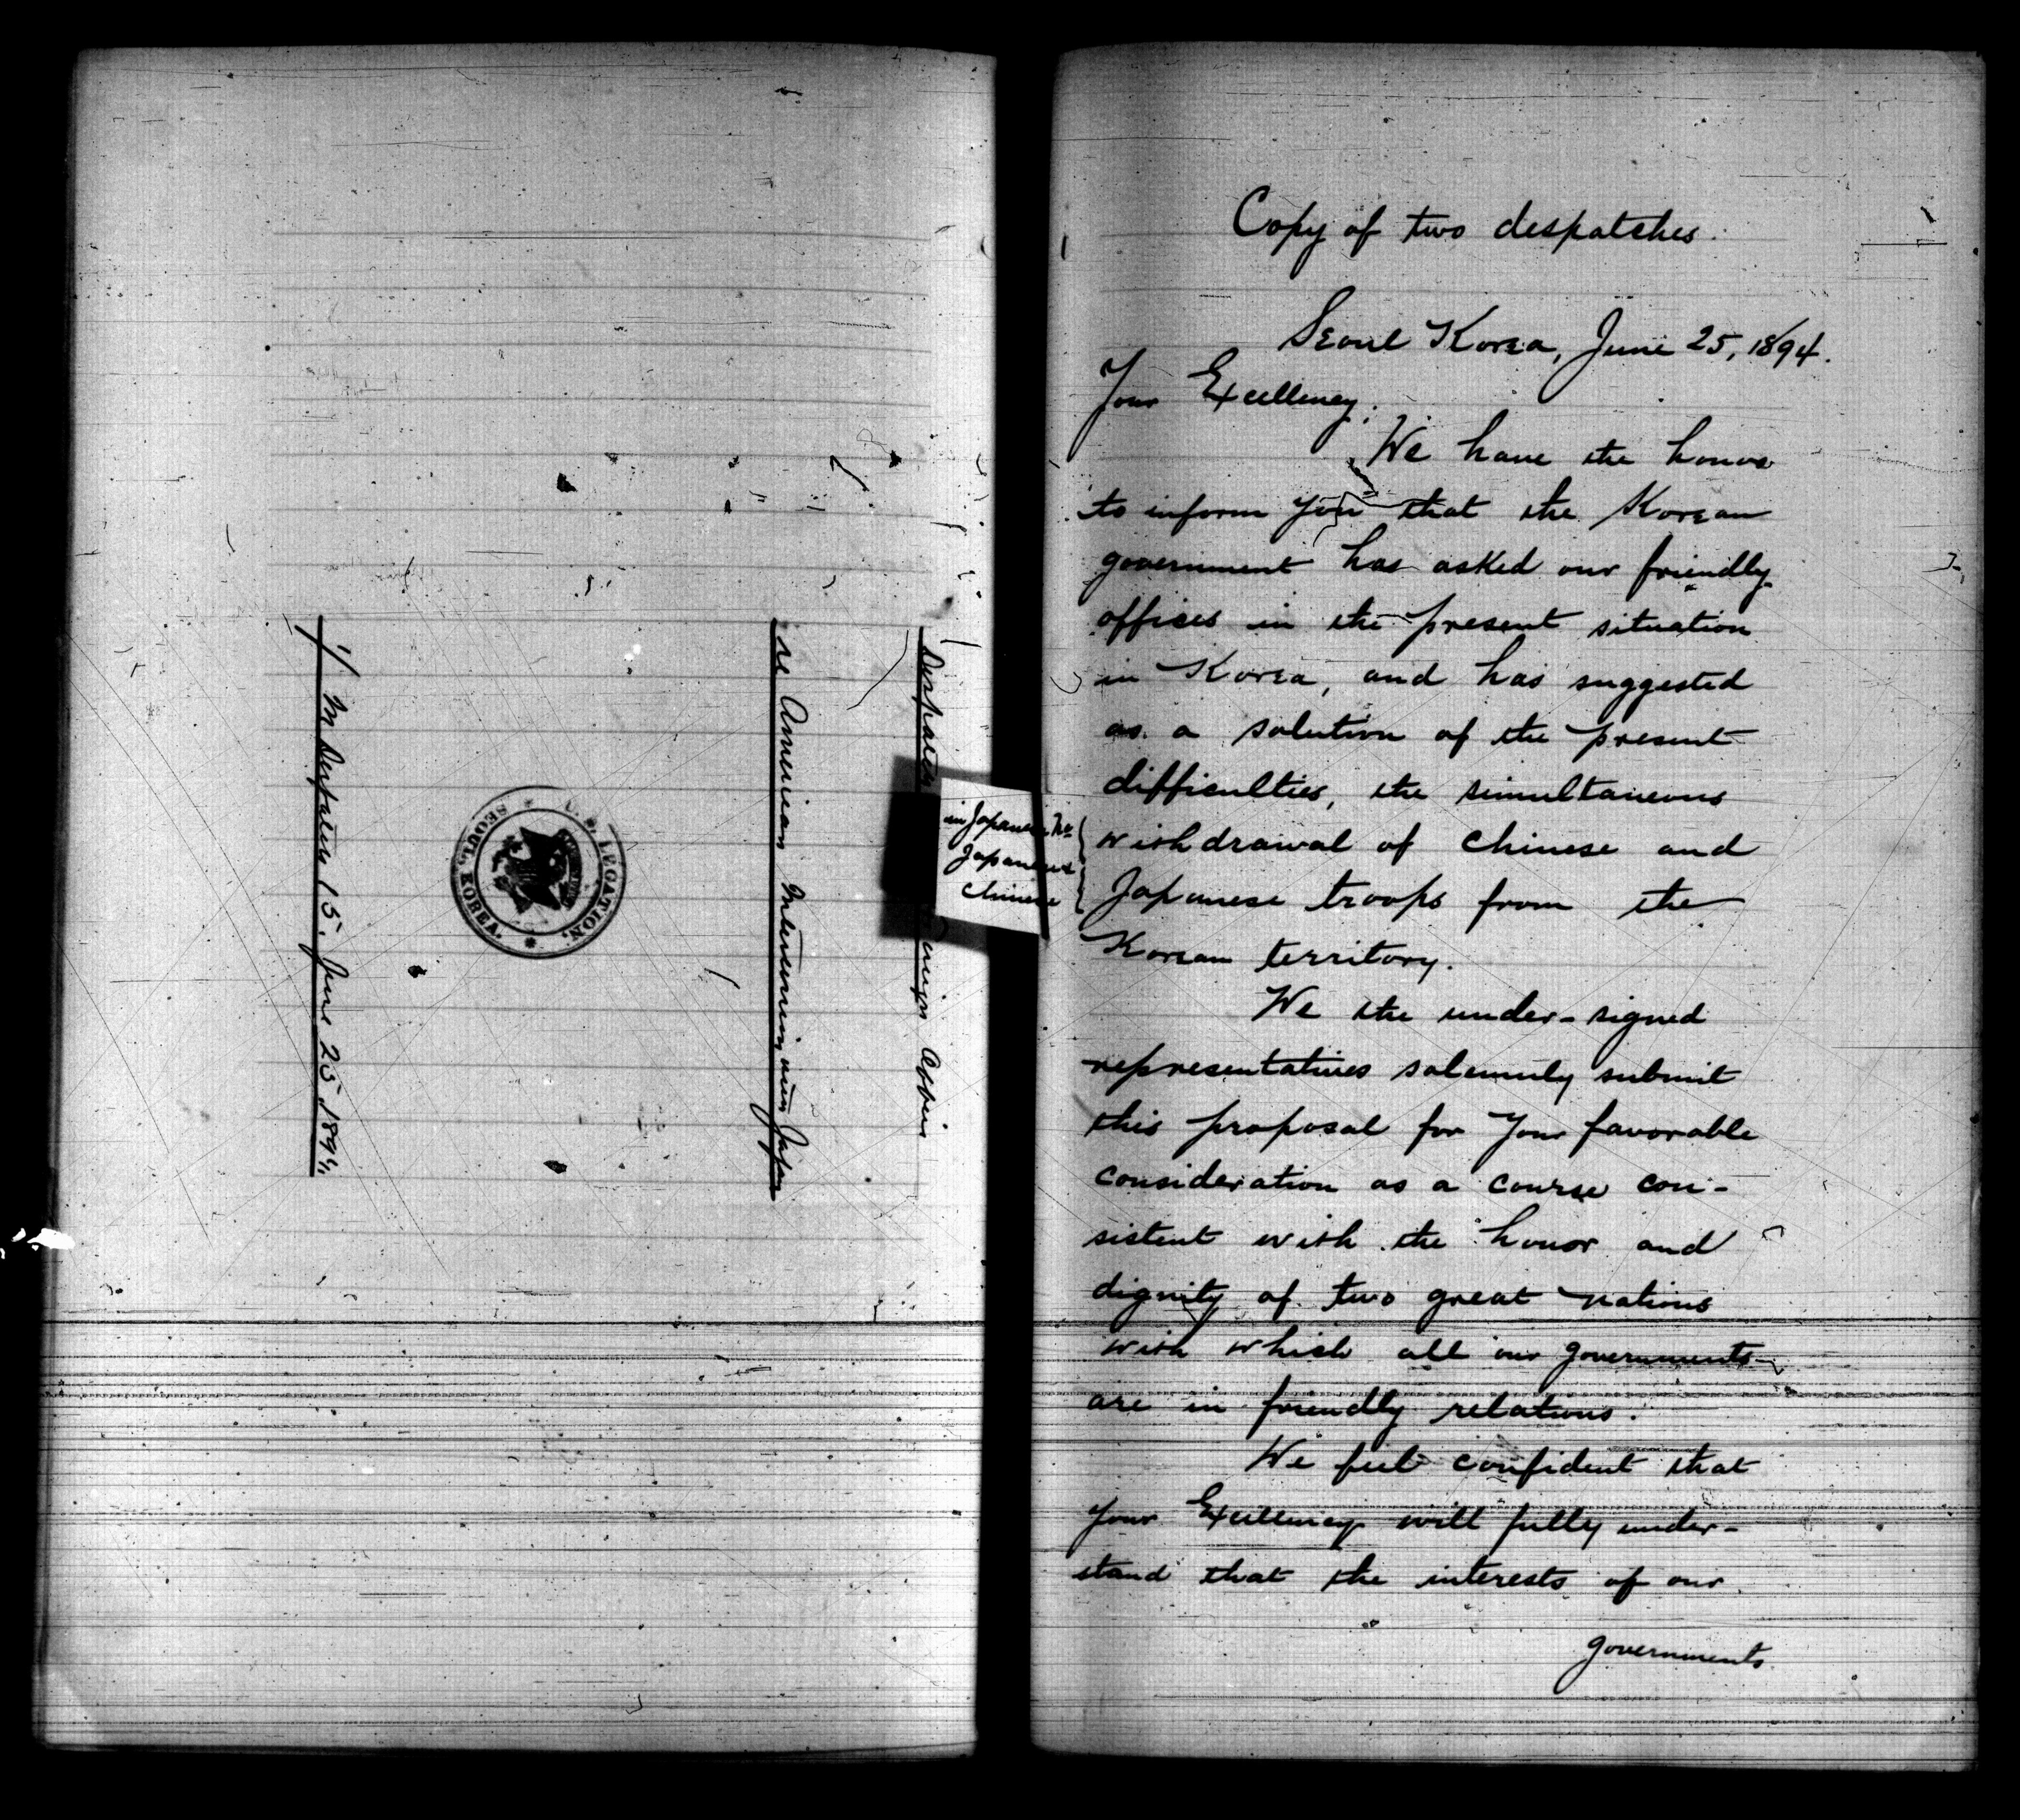 Despatch
Foreign Office
re American Intervening in Japan
U. S. LEGATION.
SEOUL, KOREA.
1/ Despatch 15. June 25, 1894.
in Japanese No.
Japanese
Chinese
Copy of two despatches.
Seoul Korea, June 25, 1894.
Your Excellency,
We have the honor
to inform you that the Korean
government has asked our friendly
offices in the present situation
in Korea, and has suggested
as a solution of the present
difficulties, the simultaneous
withdrawal of Chinese and
Japanese troops from the
Korean territory.
We the under-signed
representatives solemnly submit
this proposal for Your favorable
consideration as a course con-
sistent with the honor and
dignity of two great nations
with which all our governments
are in friendly relations.
We feel confident that
Your Excellency will fully under-
stand that the interests of our
governments